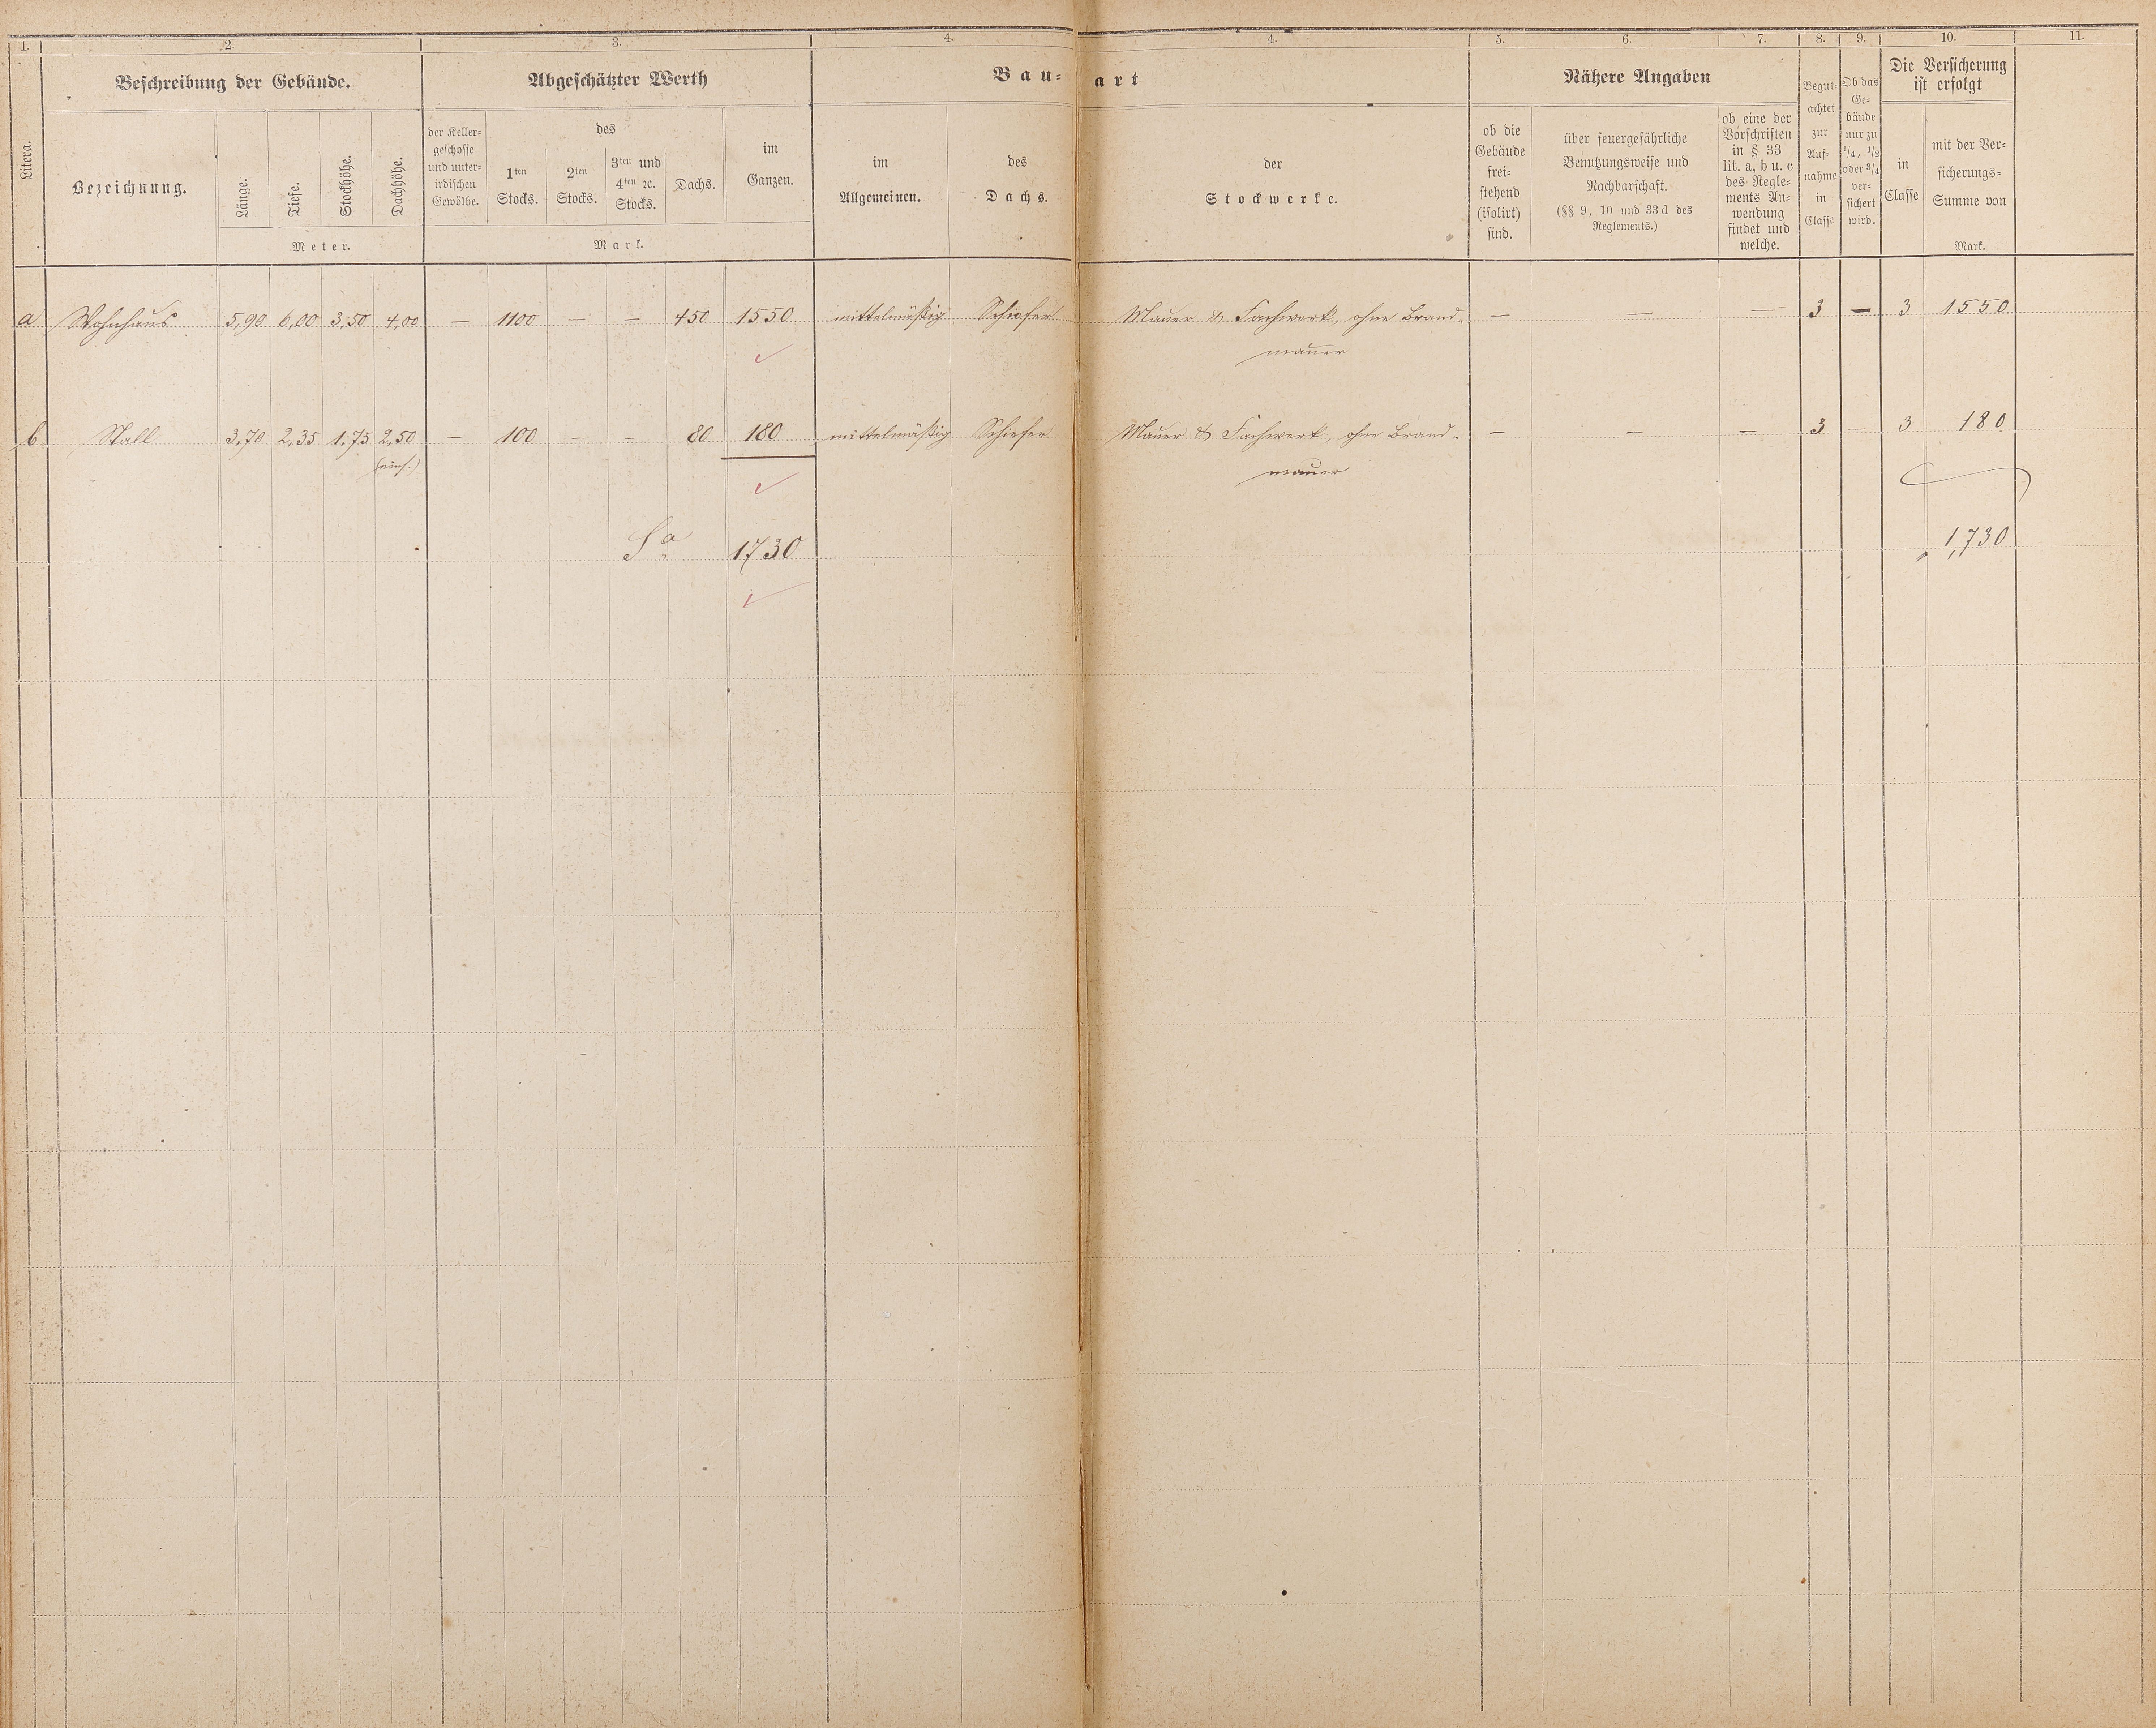 1. 2. 3. 4. 4. 5. 6. 7. 8. 9. 10. 11.
Littera.
Beschreibung der Gebäude.
Bezeichnung.
Länge.
Tiefe.
Stockhöhe.
Dachhöhe.
Meter.
Abgeschätzter Werth
der Keller-
geschosse
und unter-
irdischen
Gewölbe.
des
1ten
Stocks.
2ten
Stocks.
3ten und
4ten ꝛc.
Stocks.
Dachs.
im
Ganzen.
Mark.
Bau-art
im
Allgemeinen.
des
Dachs.
der
Stockwerke.
Nähere Angaben
ob die
Gebäude
frei-
stehend
(isolirt)
sind.
über feuergefährliche
Benutzungsweise und
Nachbarschaft.
(§§ 9, 10 und 33 d des
Reglements.)
ob eine der
Vorschriften
in § 33
lit. a, b u. c
des Regle-
ments An-
wendung
findet und
welche.
Begut-
achtet
zur
Auf-
nahme
in
Classe
Ob das
Ge-
bäude
nur zu
1/4, 1/2
oder 3/4
ver-
sichert
wird.
Die Versicherung
ist erfolgt
in
Classe
mit der Ver-
sicherungs-
Summe von
Mark.
a Wohnhaus 5,90 6,00 3,50 4,00 — 1100 — — 450 1550 mittelmäßig Schiefer Mauer & Fachwerk, ohne Brand- — — — 3 — 3 1550
mauer
b Stall 3,70 2,35 1,75 2,50 — 100 — — 80 180 mittelmäßig Schiefer Mauer & Fachwerk, ohne Brand- — — — 3 — 3 180
mauer
Sa 1730 1,730